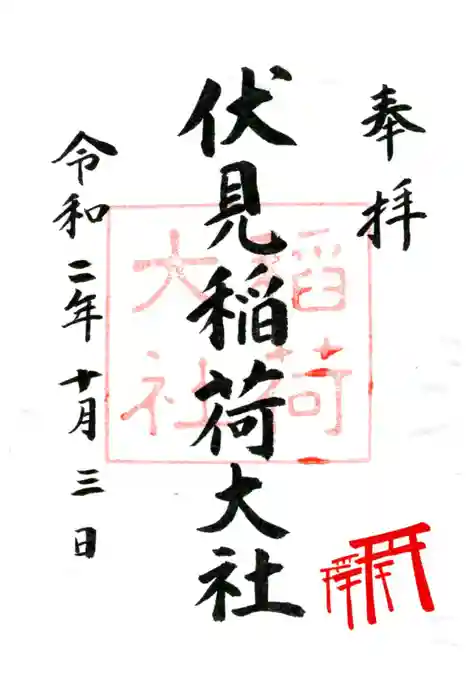 奉拝
伏見稲荷大社
稲荷
大社
令和二年十月三日